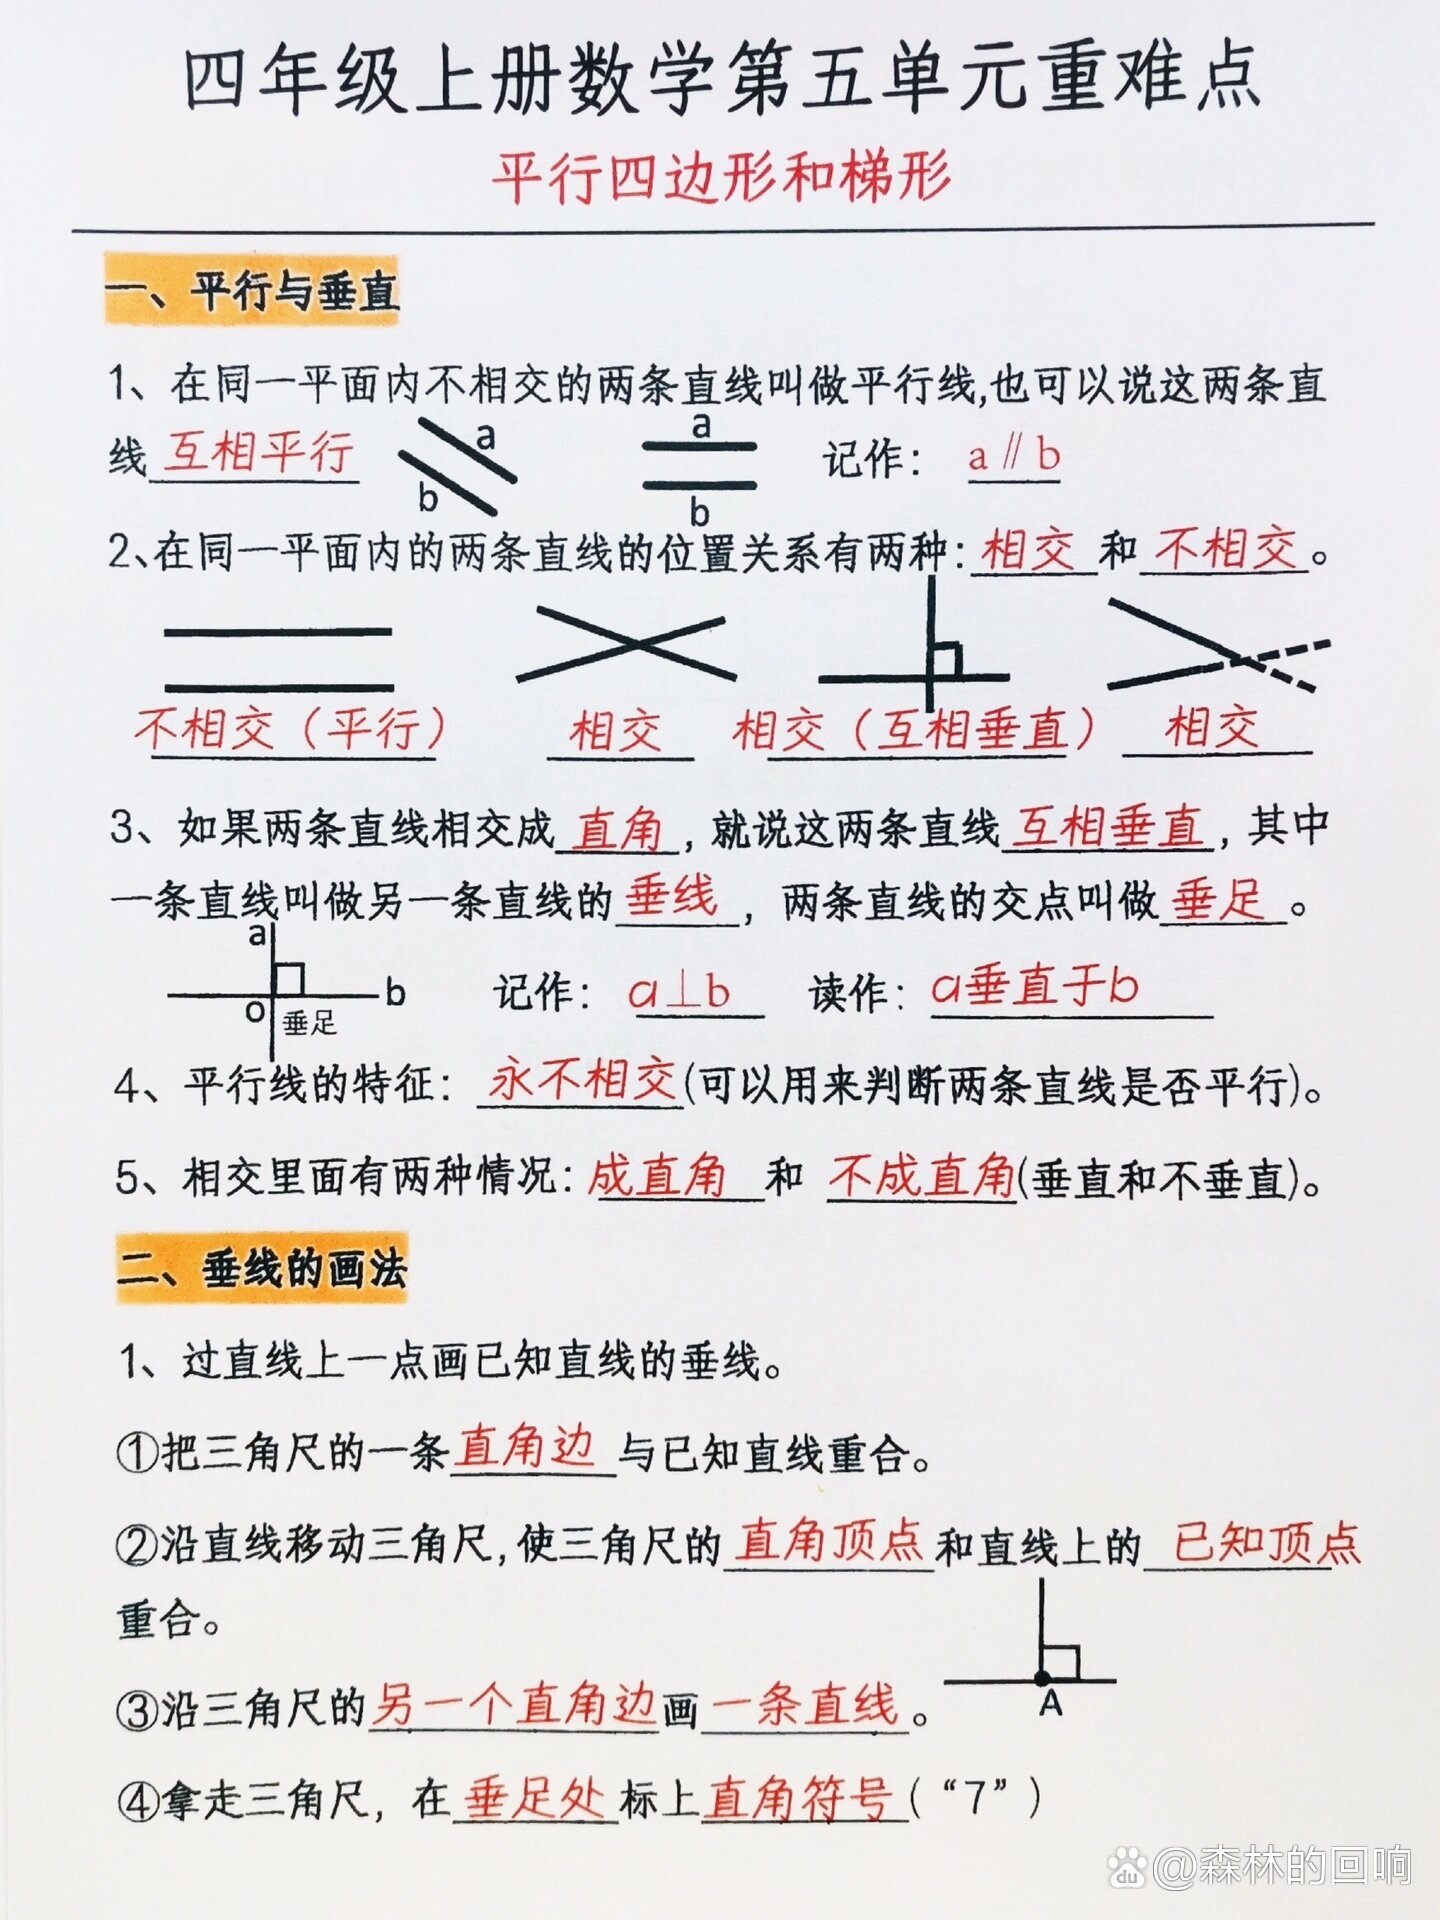 四年级上册数学第五单元重难点
平行四边形和梯形
一、平行与垂直
1、在同一平面内不相交的两条直线叫做平行线,也可以说这两条直
线互相平行 a b a b 记作: a∥b
2、在同一平面内的两条直线的位置关系有两种:相交和不相交。
不相交(平行) 相交 相交(互相垂直) 相交
3、如果两条直线相交成直角,就说这两条直线互相垂直,其中
一条直线叫做另一条直线的垂线,两条直线的交点叫做垂足。
a b o 垂足 记作: a⊥b 读作: a垂直于b
4、平行线的特征: 永不相交(可以用来判断两条直线是否平行)。
5、相交里面有两种情况:成直角和不成直角(垂直和不垂直)。
二、垂线的画法
1、过直线上一点画已知直线的垂线。
①把三角尺的一条直角边与已知直线重合。
②沿直线移动三角尺,使三角尺的直角顶点和直线上的已知顶点
重合。
③沿三角尺的另一个直角边画一条直线。 A
④拿走三角尺,在垂足处标上直角符号(“7”)
du @森林的回响